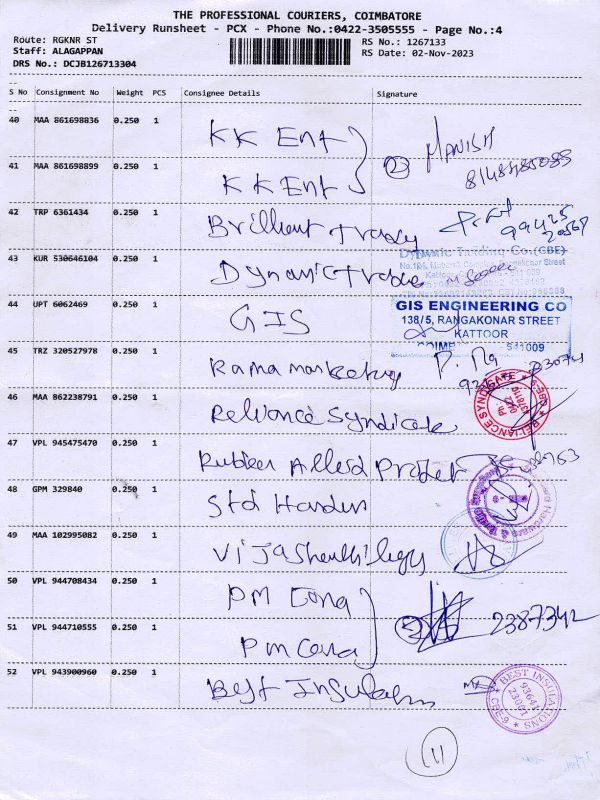 THE PROFESSIONAL COURIERS, COIMBATORE
Delivery Runsheet - PCX - Phone No.:0422-3505555 - Page No.:4
Route: RGKNR ST
RS No.: 1267133
Staff: ALAGAPPAN
RS Date: 02-Nov-2023
DRS No.: DCJB126713304
S No Consignment No Weight PCS Consignee Details Signature
40 MAA 861698836 0.250 1 KK Ent MANISH
41 MAA 861698899 0.250 1 KK Ent (2)
42 TRP 6361434 0.250 1 Brilliant Tradey 99425
Dynamic Trading Co.(CBE)
43 KUR 530646104 0.250 1 Dynamic Trade
44 UPT 6062469 0.250 1 GIS
GIS ENGINEERING CO
138/5, RANGAKONAR STREET
KATTOOR
641009
45 TRZ 320527978 0.250 1 Rama marketing
46 MAA 862238791 0.250 1 Reliance Syndicate
RELIANCE SYNDICATE
47 VPL 945475470 0.250 1 Rubber Allied Prodet
48 GPM 329840 0.250 1 Std Hardun
Hardware
49 MAA 102995082 0.250 1
50 VPL 944708434 0.250 1 PM Cona
2387342
51 VPL 944710555 0.250 1 PM Cona (2)
52 VPL 943900960 0.250 1 Best Insulation
BEST INSULATIONS
93641
23001
CBE-9
(11)